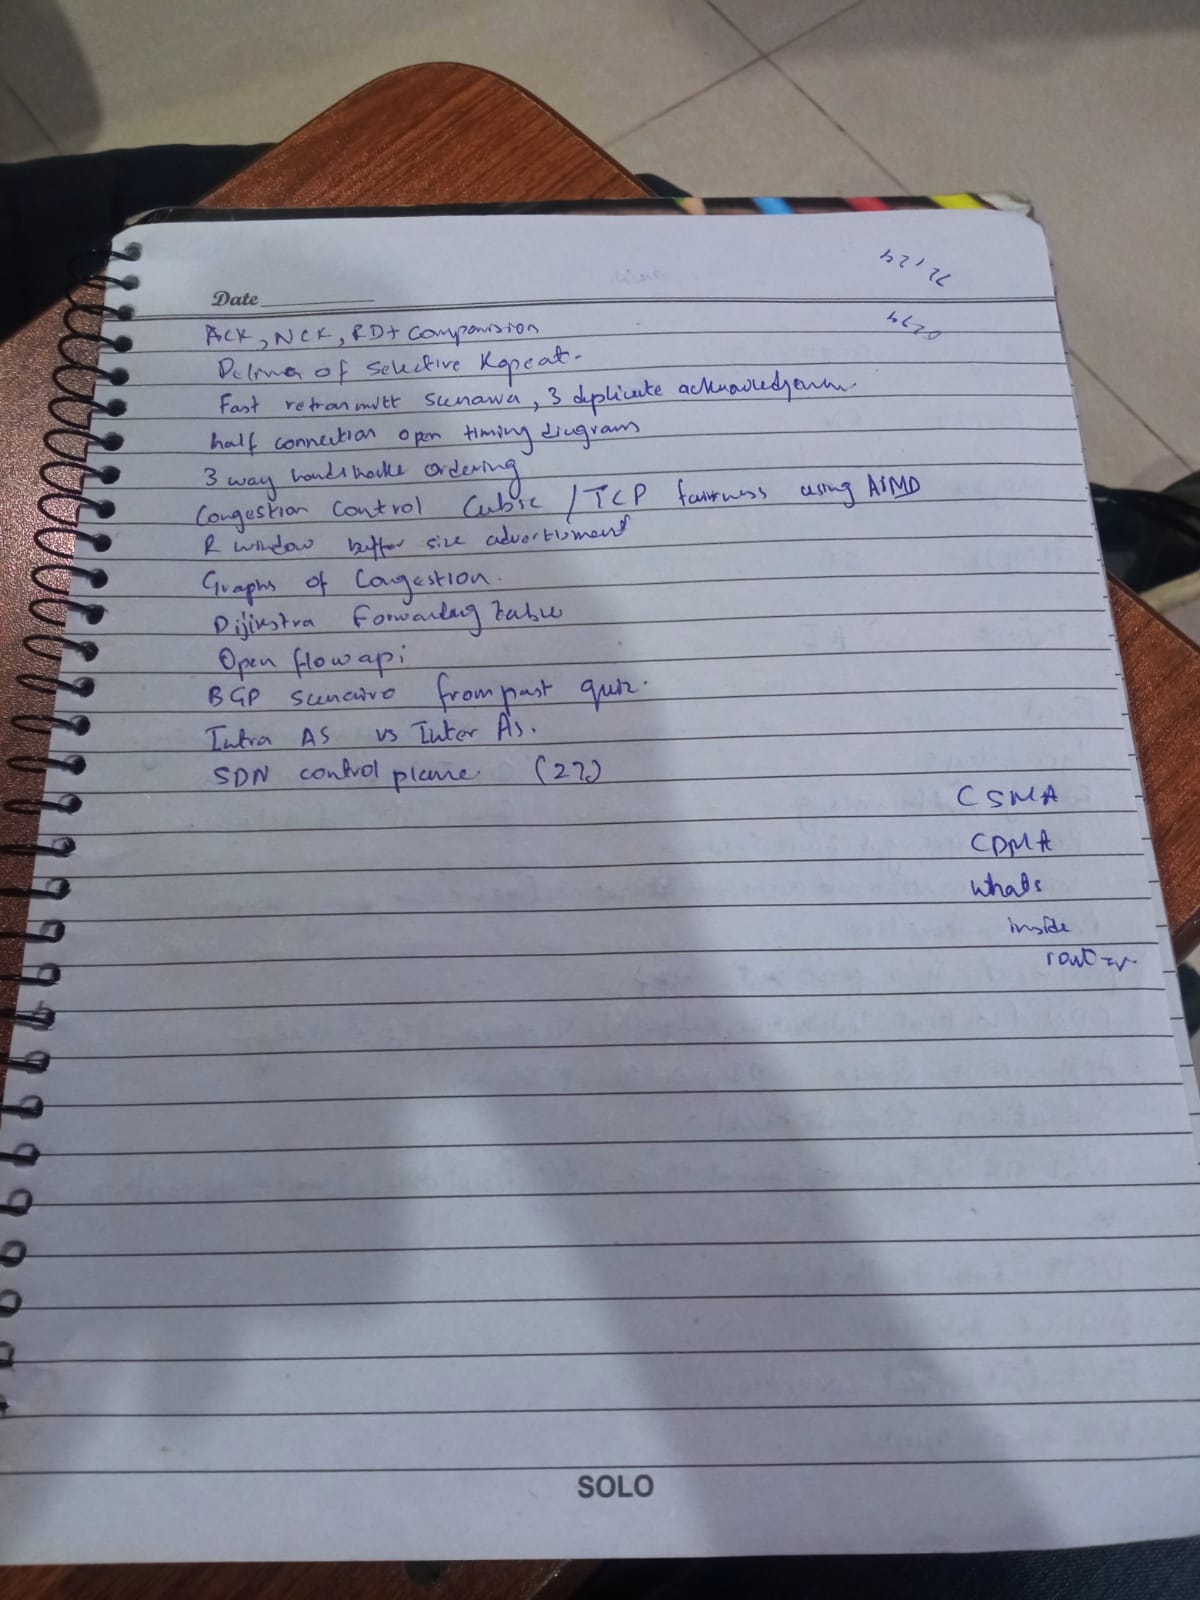 Date
ACK, NCK, RDT Comparision
Delima of Selective Repeat.
Fast retransmitt scenario, 3 duplicate
half connection open timing diagram
3 way handshake ordering
Congestion Control Cubic / TCP fairness using AIMD
R window buffer size advertisment
Graphs of Congestion.
Dijikstra Forwarding table
Open flow api
BGP scenairo from past quiz.
Intra AS vs Inter As.
SDN control plane.
CSMA
CDMA
whats
inside
router
SOLO